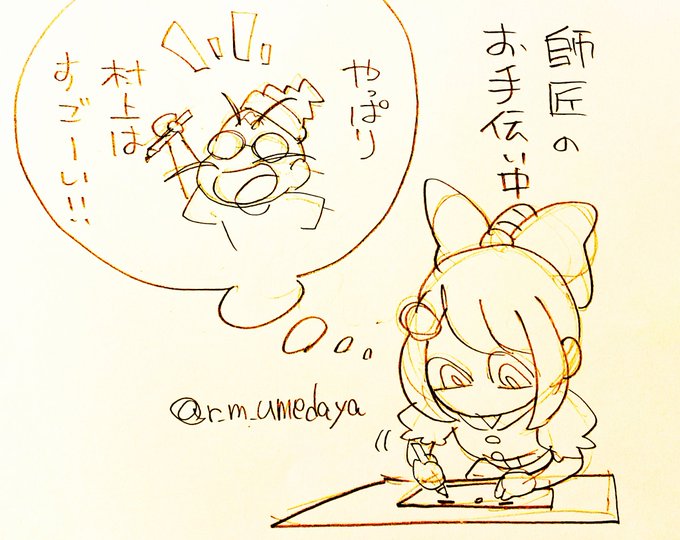 師匠の
お手伝い中
やっぱり
村上は
すごーい!!
@r_m_umedaya